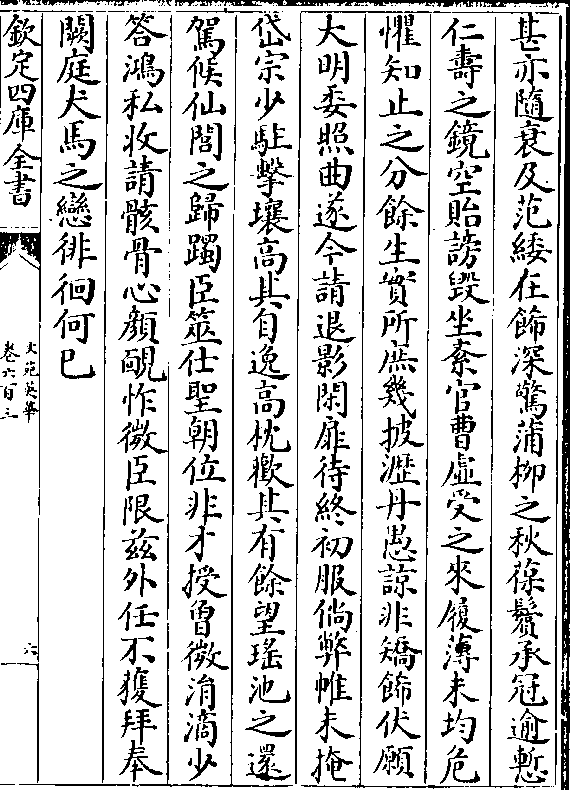 其亦隨衰及范緌在飾深驚蒲柳之秋葆鬢承冠逾慙
仁壽之鏡空貽謗毀坐紊官曹虛受之來履薄未均危
懼知止之分餘生實所庶幾披瀝丹愚諒非矯飾伏願
大明委照曲遂今請退影閑扉待終初服倘弊帷未掩
岱宗少駐擊壤高其自逸高枕歡其有餘望瑤池之還
駕候仙閭之歸躅臣筮仕聖朝位非才授曾微涓滴少
答鴻私收請骸骨心顔靦怍微臣限茲外任不獲拜奉
闕庭犬馬之戀徘徊何已
欽定四庫全書
文苑英華
卷六百三
六